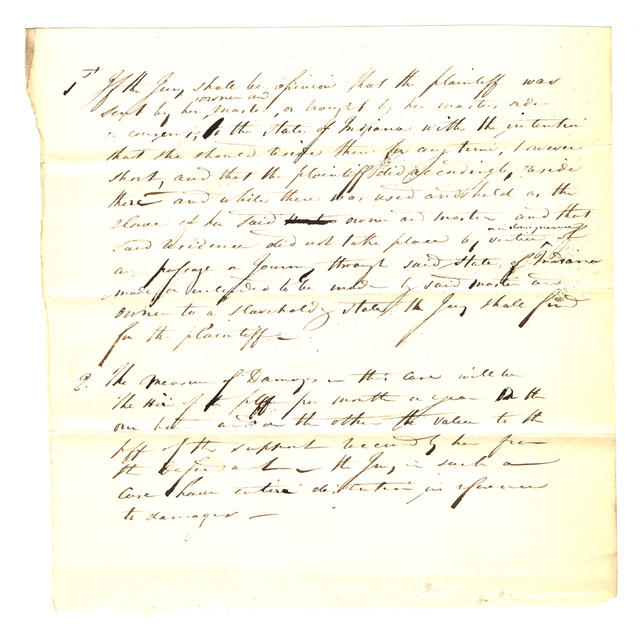 1st If the Jury shall be opinion that the plaintiff was
owner and
sent by her, master, or brought by her masters order
or consent, to the State of Indiana with the intention
that she should reside there for any time, however
short, and that the plaintiff did accordingly reside
there and while there was used and held as the
slave of her said owner and master and that
and in consequence
said residence did not take place by virtue of
any passage or Journey through said State of Indiana
made or intended to be made by said master and
owner to a slaveholding state, the Jury shall find
for the plaintiff —
2. The measure of Damages in this case will be
The Hire of the plff per month or year on the
one hand and on the other the value to the
plff of the support received by her from
the defendant — the Jury in such a
case have entire discretion in reference
to damages —